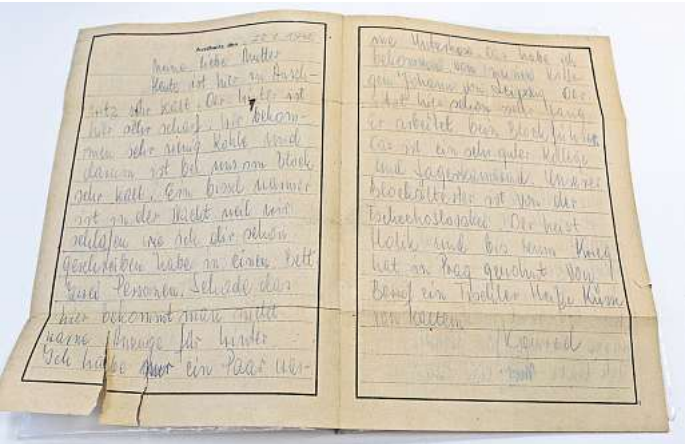 Auschwitz, den 20.1.1940
Meine liebe Mutter
Heute ist hier in Ausch-
witz sehr kalt. Der Winter ist
hier sehr scharf. Wir bekom-
men sehr wenig Kohle und
darum ist bei uns am Block
sehr kalt. Ein bissel warmer
ist in der Nacht weil wir
schlafen wie ich dir schon
geschrieben habe in einen Bett
zwei Personen. Schade das
hier bekommt man nicht
warme Anzuge für Winter
Ich habe nur ein Paar war-
me Unterhose. Das habe ich
bekommen von meinen Kolle-
gen Johann von Leipzig. Der
sitzt hier schon sehr lang
Er arbeitet beim Blockführer
Das ist ein sehr guter Kollege
und Lagerkamerad. Unserer
Blockältester ist von der
Tschechoslovakei. Der heist
Holik und bis zum Krieg
hat in Prag gewohnt. Von
Beruf ein Tischler. Küsse
von kaltem
Konrad